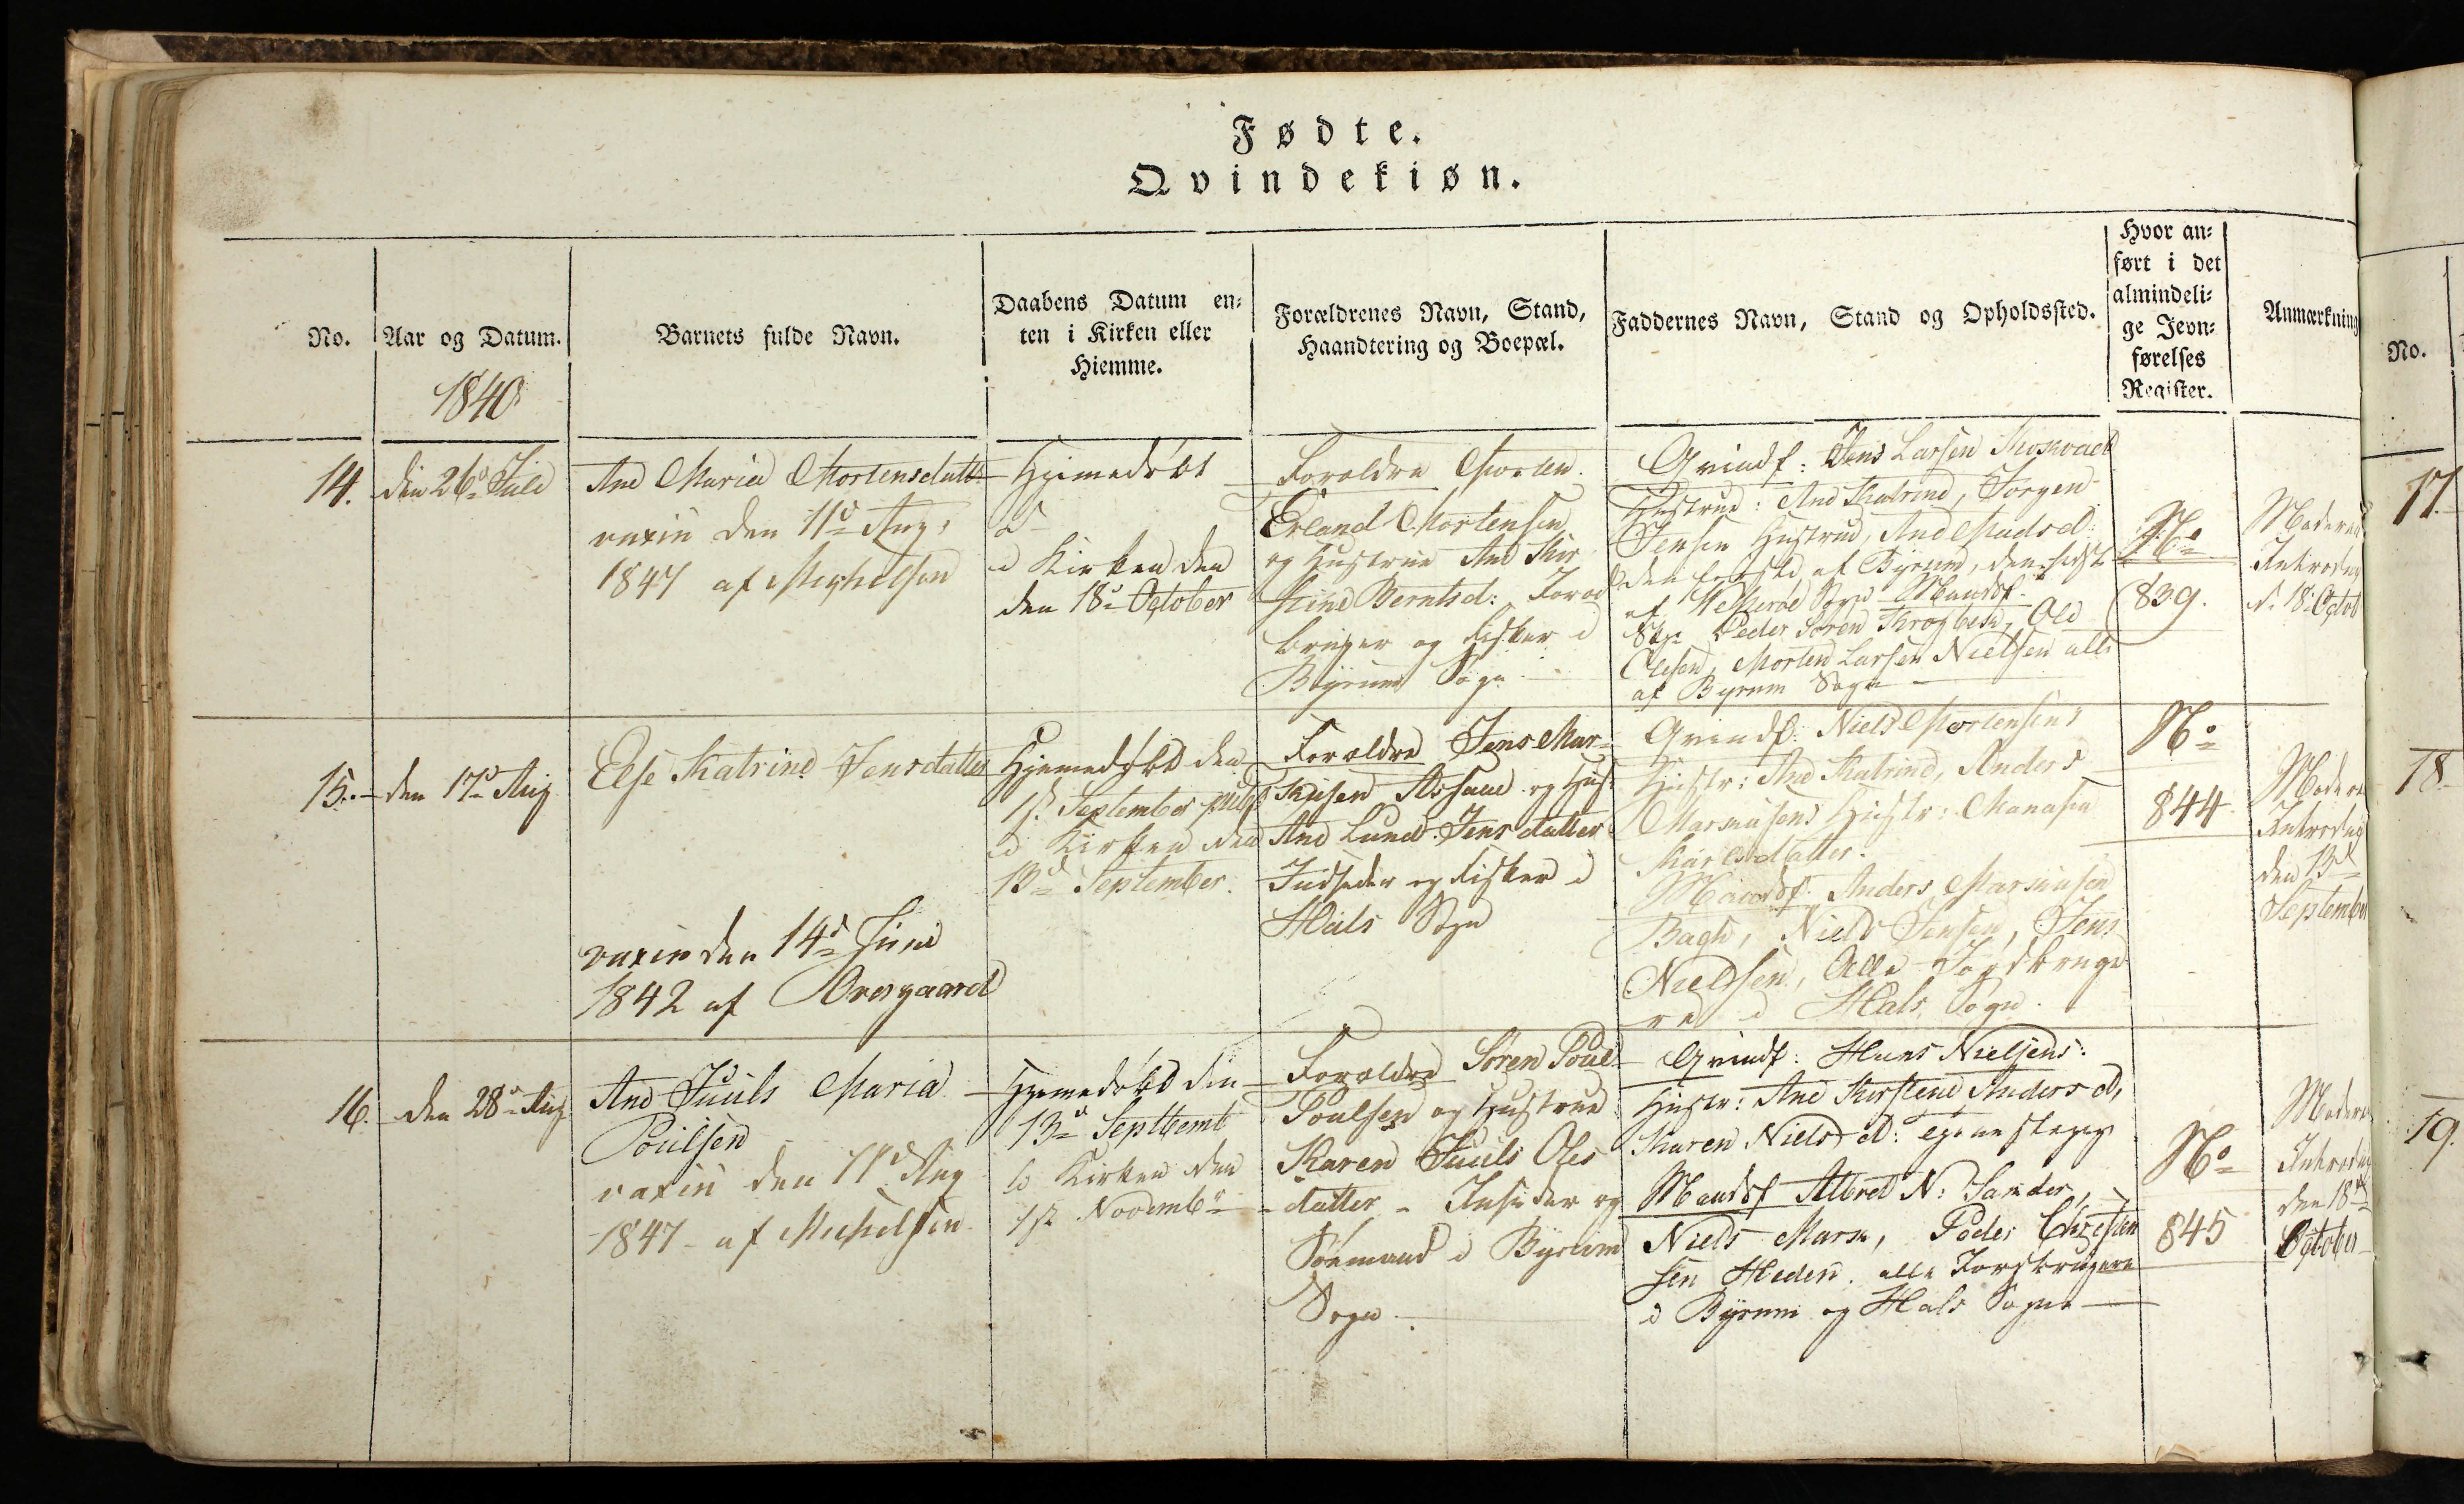 Fødte.
Qvindekiøn.
No.
Aar og Datum.
1840
Barnets fulde Navn.
Daabens Datum en-
ten i Kirken eller
Hiemme.
Forældrenes Navn, Stand,
Haandtering og Boepæl.
Faddernes Navn, Stand og Opholdssted.
Hvor an-
ført i det
almindeli-
ge Jevn-
førelses
Register.
Anmærkning
No.
14.
den 26d Juli
Ane Maria Mortensdatt
vaxin den 11d Aug:
1847 af Michelsen
Hjemedøbt
i Kirken den
den 18d October
Forældre Morten
Erland Mortensen
og Hustrue Ane Kir
stine Berntsd:
bruger og Fisker i
Byrum Sogn
Qvindf: Jens Larsen
Hustrue: Ane Katrine, Jørgen
Jensen Hustrue, Ane Madsd:
den første af Byrum, den sidste
af Sogn Mandsf.
Peder Søren Krogbek, Ole
Olesen, Morten Larsen Nielsen alle
af Byrum Sogn
No
839.
Moderen
Introdu
d. 18 Octob
17.
15.
den 17d Aug
Else Katrine Jensdatter
vaxin den 14d Juni
1842 af Overgaard
Hjemedøbt den
1st September
i Kirken den
13d September.
Forældre Jens Mar-
kusen og Hust
Ane Lund Jensdatter
Indsider og Fisker i
Hals Sogn
Qvindf: Niels Mortensens
Hustr: Ane Katrine, Anders
Marcusens Hustr:
Karlsdatter.
Mandsf. Anders Marcusen
Bagh, Niels Jensen, Jens
Nielsen, Alle Jordbruge
re i Hals Sogn.
No
844
Modere
Introdu
den 13d
September
18
16.
den 28d Aug
Ane Juuls Maria
Poulsen
vaxin den 11d Aug
1847 af Michelsen
Hjemedøbt den
13d Septtemb
i Kirken den
1st Novemb
Forældre Søren Poul
Poulsen og Hustrue
Karen Juuls Oles
datter - Insider og
Sømand i Byrum
Sogn
Qvindf: Hans Nielsens
Hustr: Ane Kirstine Andersd,
Karen Nielsd:
Mandsf Albret N:
Niels Marc, Peder Christen
sen Heden. alle Jordbrugere
i Byrum og Hals Sogne
No
845
Moderen
Introdu
den 18d
October
19.